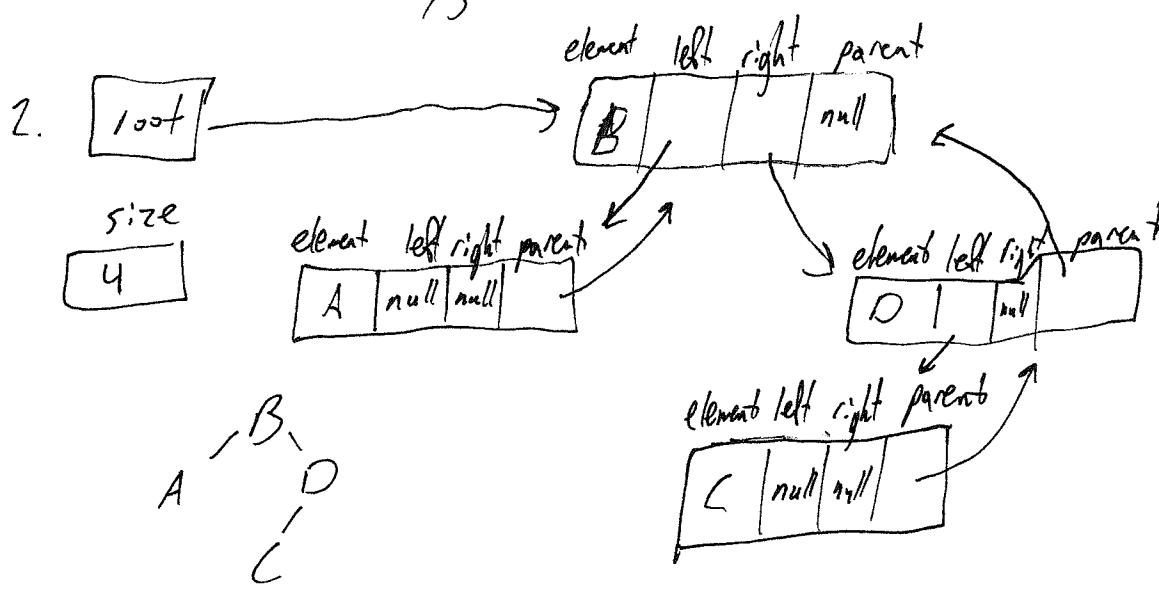 element left right parent
2. root B null
size
4
element left right parent
A null null
element left right parent
D null
element left right parent
C null null
B
A D
C